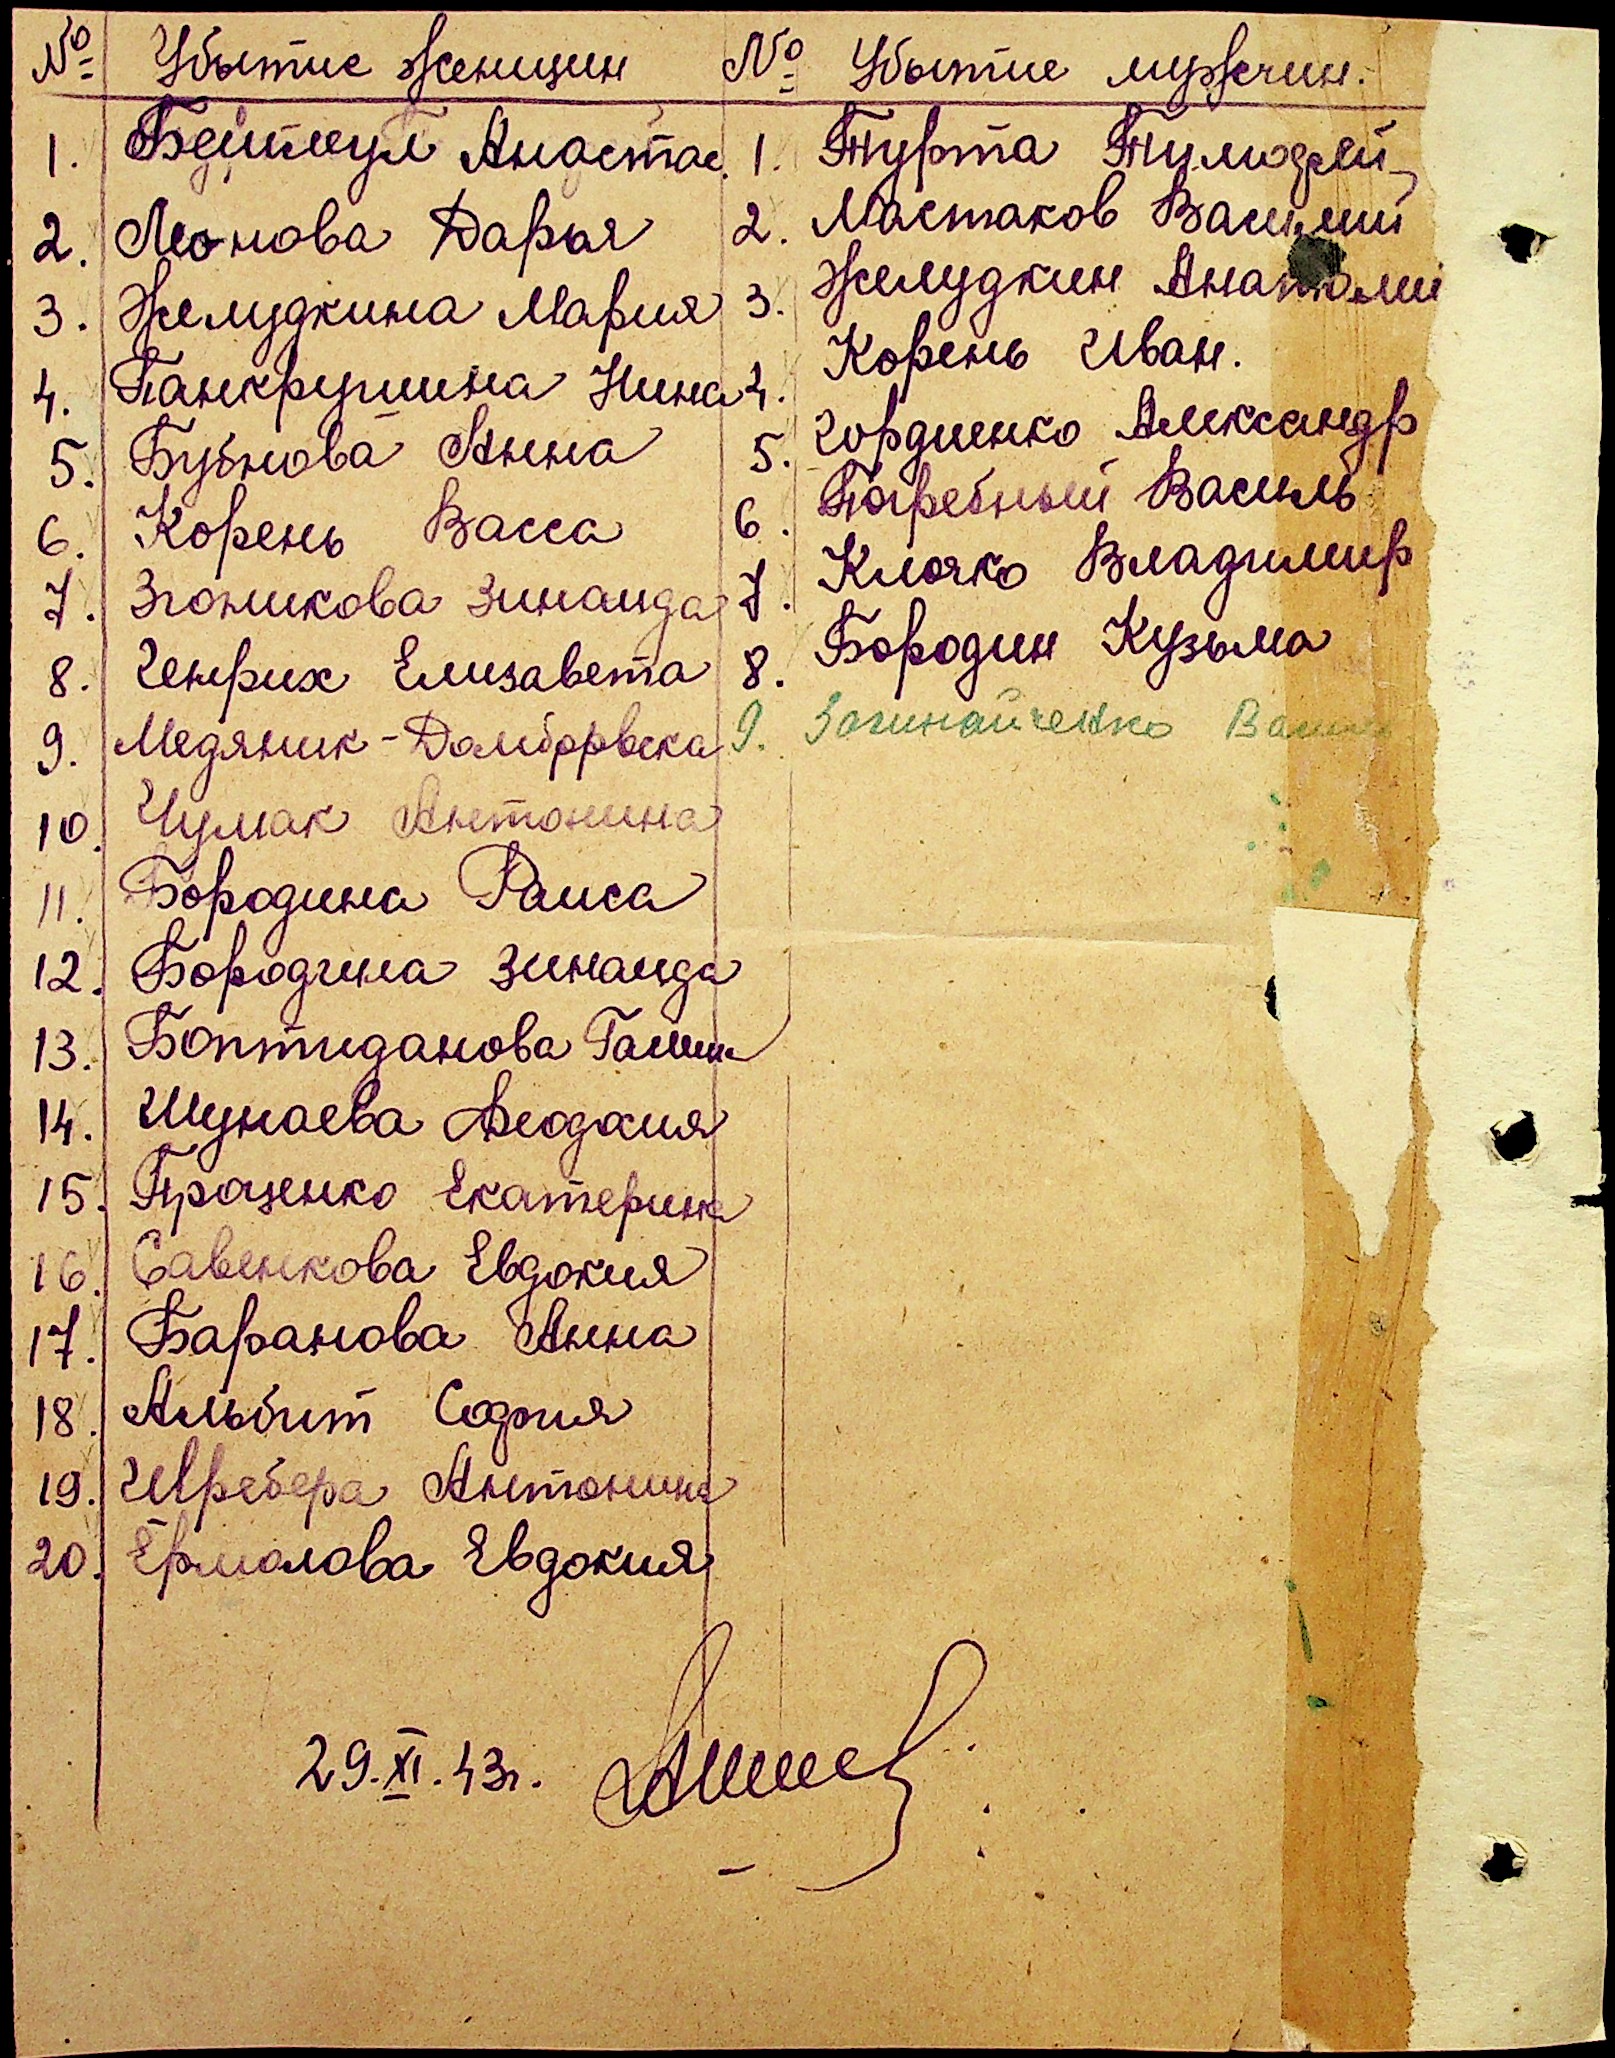 № Убытие женщин № Убытие мужчин.
1. Анастас. 1. Турта Тимофей
2. Леонова Дарья 2. Мастаков Василий
3. Желудкина Мария 3. Желудкин Анатолий
4. Панкрушина Нина 4. Корень Иван.
5. Бубнова Анна 5. Гордиенко Александр
6. Корень Васса 6. Погребный Василь
7. Згоникова Зинаида 7. Клочко Владимир
8. Генрих Елизавета 8. Бородин Кузьма
9. Медяник-Домбровска 9. Загинайченко
10. Чумак Антонина
11. Бородина Раиса
12. Бородина Зинаида
13. Боптиданова Галина
14. Шунаева Феодосия
15. Проценко Екатерина
16. Савенкова Евдокия
17. Баранова Анна
18. Альбит София
19. Антонина
20. Ермолова Евдокия
29.XI.43г.